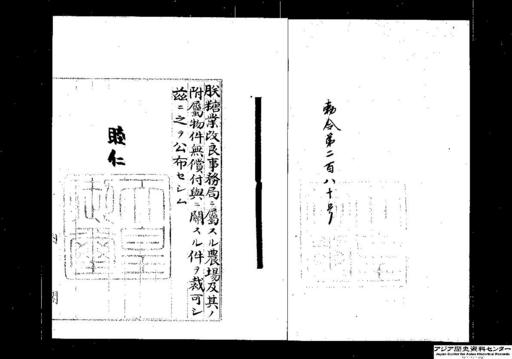 勅令第二百八十号
朕糖業改良事務局ニ属スル農場及其ノ
附属物件無償付与ニ関スル件ヲ裁可シ
茲ニ之ヲ公布セシム
睦仁
アジア歴史資料センター
Japan Center for Asian Historical Records